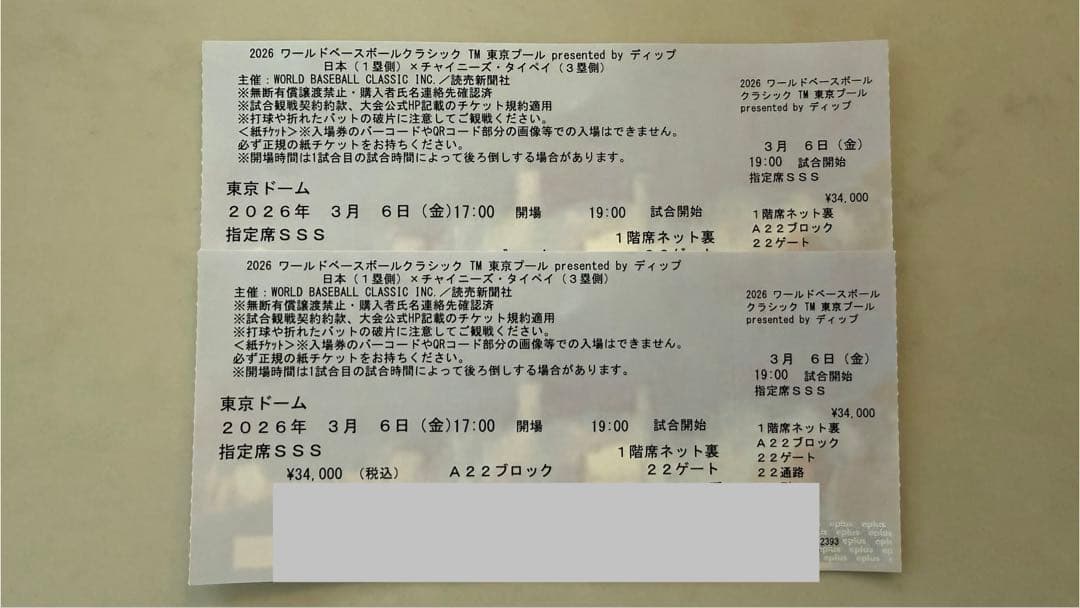 2026 ワールドベースボールクラシック TM 東京プール presented by ディップ
日本（１塁側）×チャイニーズ・タイペイ（３塁側）
主催：WORLD BASEBALL CLASSIC INC.／読売新聞社
※無断有償譲渡禁止・購入者氏名連絡先確認済
※試合観戦契約約款、大会公式HP記載のチケット規約適用
※打球や折れたバットの破片に注意してご観戦ください。
＜紙ﾁｹｯﾄ＞※入場券のバーコードやQRコード部分の画像等での入場はできません。
必ず正規の紙チケットをお持ちください。
※開場時間は1試合目の試合時間によって後ろ倒しする場合があります。
東京ドーム
２０２６年　３月　６日（金）17:00　開場　19:00　試合開始
指定席ＳＳＳ
１階席ネット裏
2026 ワールドベースボール
クラシック TM 東京プール
presented by ディップ
３月　６日（金）
19:00　試合開始
指定席ＳＳＳ
¥34,000
１階席ネット裏
Ａ２２ブロック
２２ゲート
2026 ワールドベースボールクラシック TM 東京プール presented by ディップ
日本（１塁側）×チャイニーズ・タイペイ（３塁側）
主催：WORLD BASEBALL CLASSIC INC.／読売新聞社
※無断有償譲渡禁止・購入者氏名連絡先確認済
※試合観戦契約約款、大会公式HP記載のチケット規約適用
※打球や折れたバットの破片に注意してご観戦ください。
＜紙ﾁｹｯﾄ＞※入場券のバーコードやQRコード部分の画像等での入場はできません。
必ず正規の紙チケットをお持ちください。
※開場時間は1試合目の試合時間によって後ろ倒しする場合があります。
東京ドーム
２０２６年　３月　６日（金）17:00　開場　19:00　試合開始
指定席ＳＳＳ
１階席ネット裏
¥34,000　（税込）　Ａ２２ブロック　２２ゲート
2026 ワールドベースボール
クラシック TM 東京プール
presented by ディップ
３月　６日（金）
19:00　試合開始
指定席ＳＳＳ
¥34,000
１階席ネット裏
Ａ２２ブロック
２２ゲート
２２通路
eplus eplus
2393